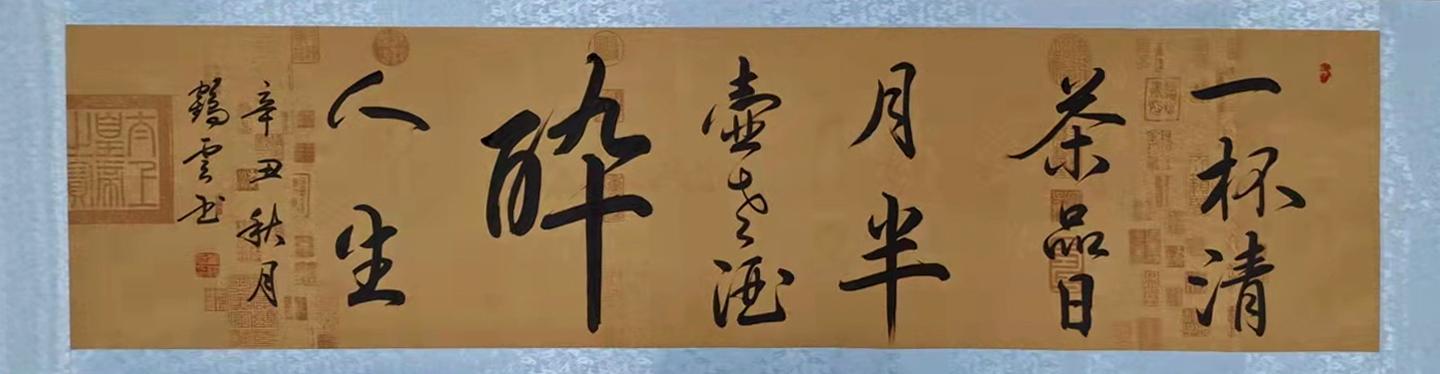 一杯清
茶品日
月半
壶老酒
醉
人生
辛丑秋月
鹤云书